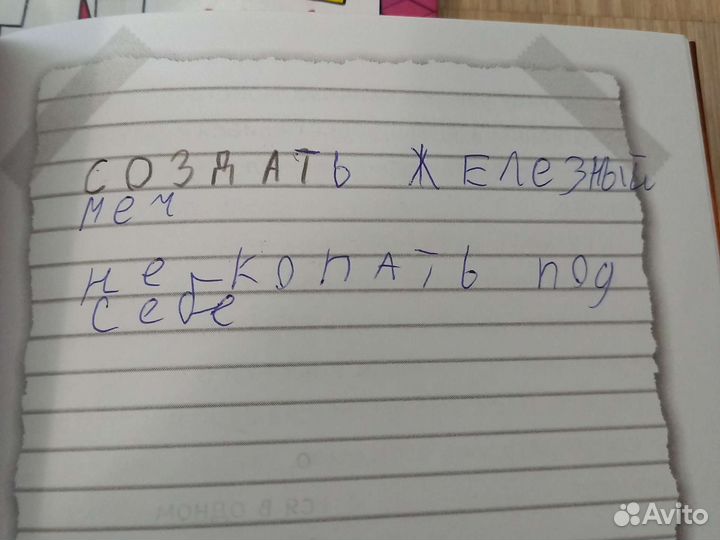 СОЗДАТЬ ЖЕЛЕЗНЫЙ
меч
не копать под
себе
СЯ В ОДНОМ
Avito